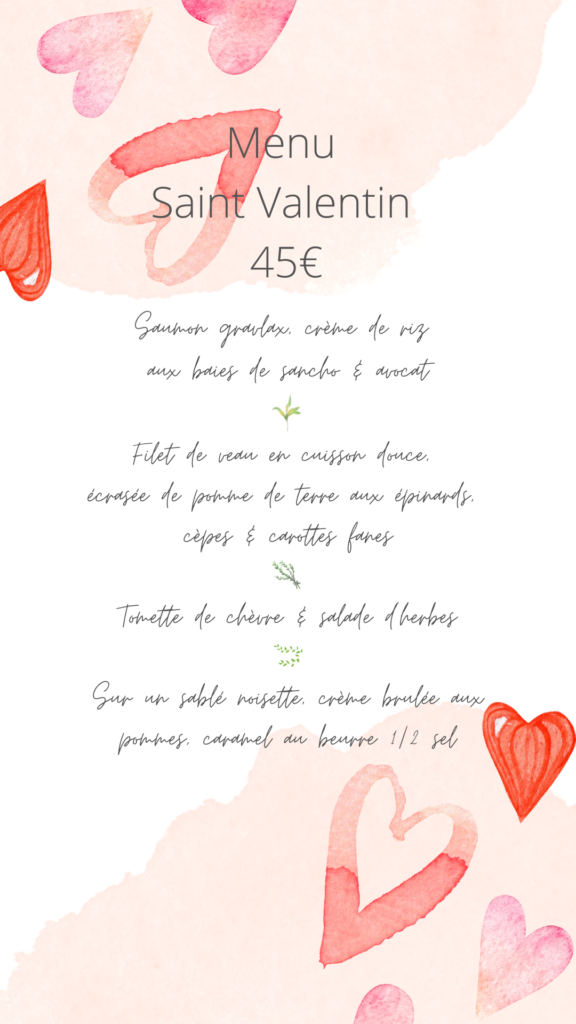 Menu
Saint Valentin
45€
Saumon gravlax, crème de riz
aux baies de sancho & avocat
Filet de veau en cuisson douce,
écrasée de pomme de terre aux épinards,
cèpes & carottes fanes
Tomette de chèvre & salade d'herbes
Sur un sablé noisette, crème brulée aux
pommes, caramel au beurre 1/2 sel